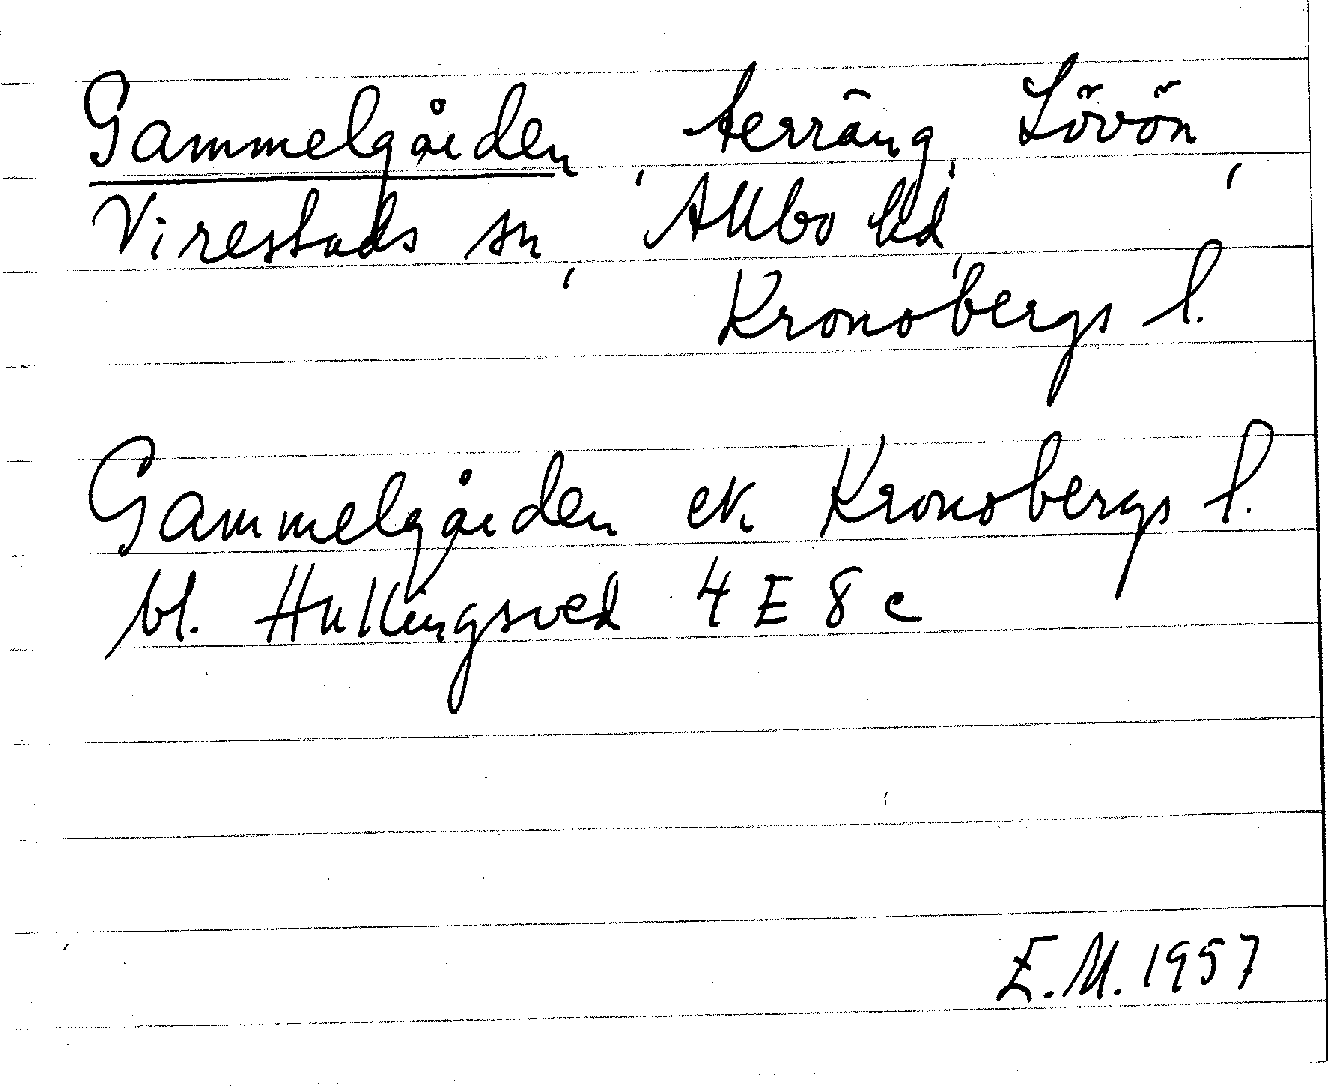 Gammelgården, terräng, Lövön,
Virestads sn, Allbo hd,
Kronobergs l.
Gammelgården ek. Kronobergs l.
bl. Hullingsved 4 E 8 c
E.M. 1957